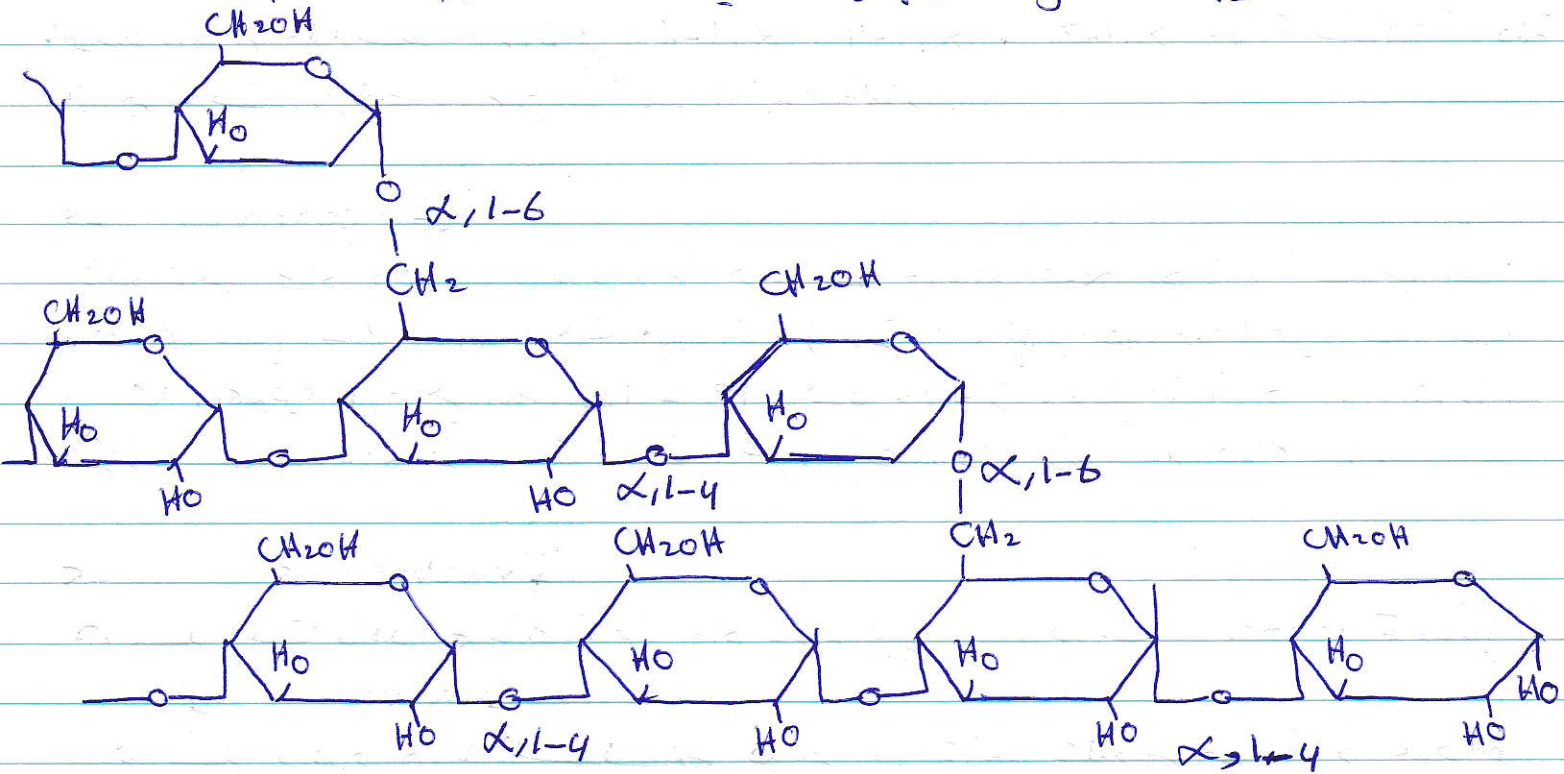 CH2OH
O
HO
O
O
α, 1-6
CH2
CH2OH
CH2OH
O
O
O
HO
HO
HO
O
O
O α, 1-6
HO
HO
α, 1-4
CH2OH
CH2OH
CH2
CH2OH
O
O
O
O
HO
HO
HO
HO
O
O
O
O
HO
HO
α, 1-4
HO
HO
α, 1-4
HO